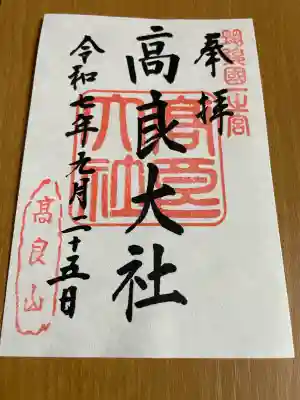 筑後國一之宮
奉拝
高良大社
高良大社
令和七年元月二十五日
高良山